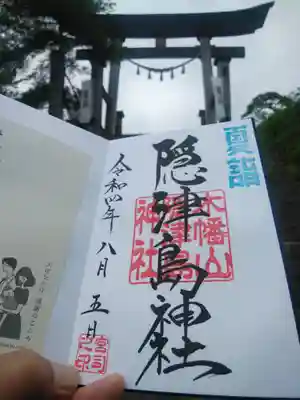 夏詣
隠津島神社
木幡山
隠津島
神社
令和四年八月五日
宮司
之印